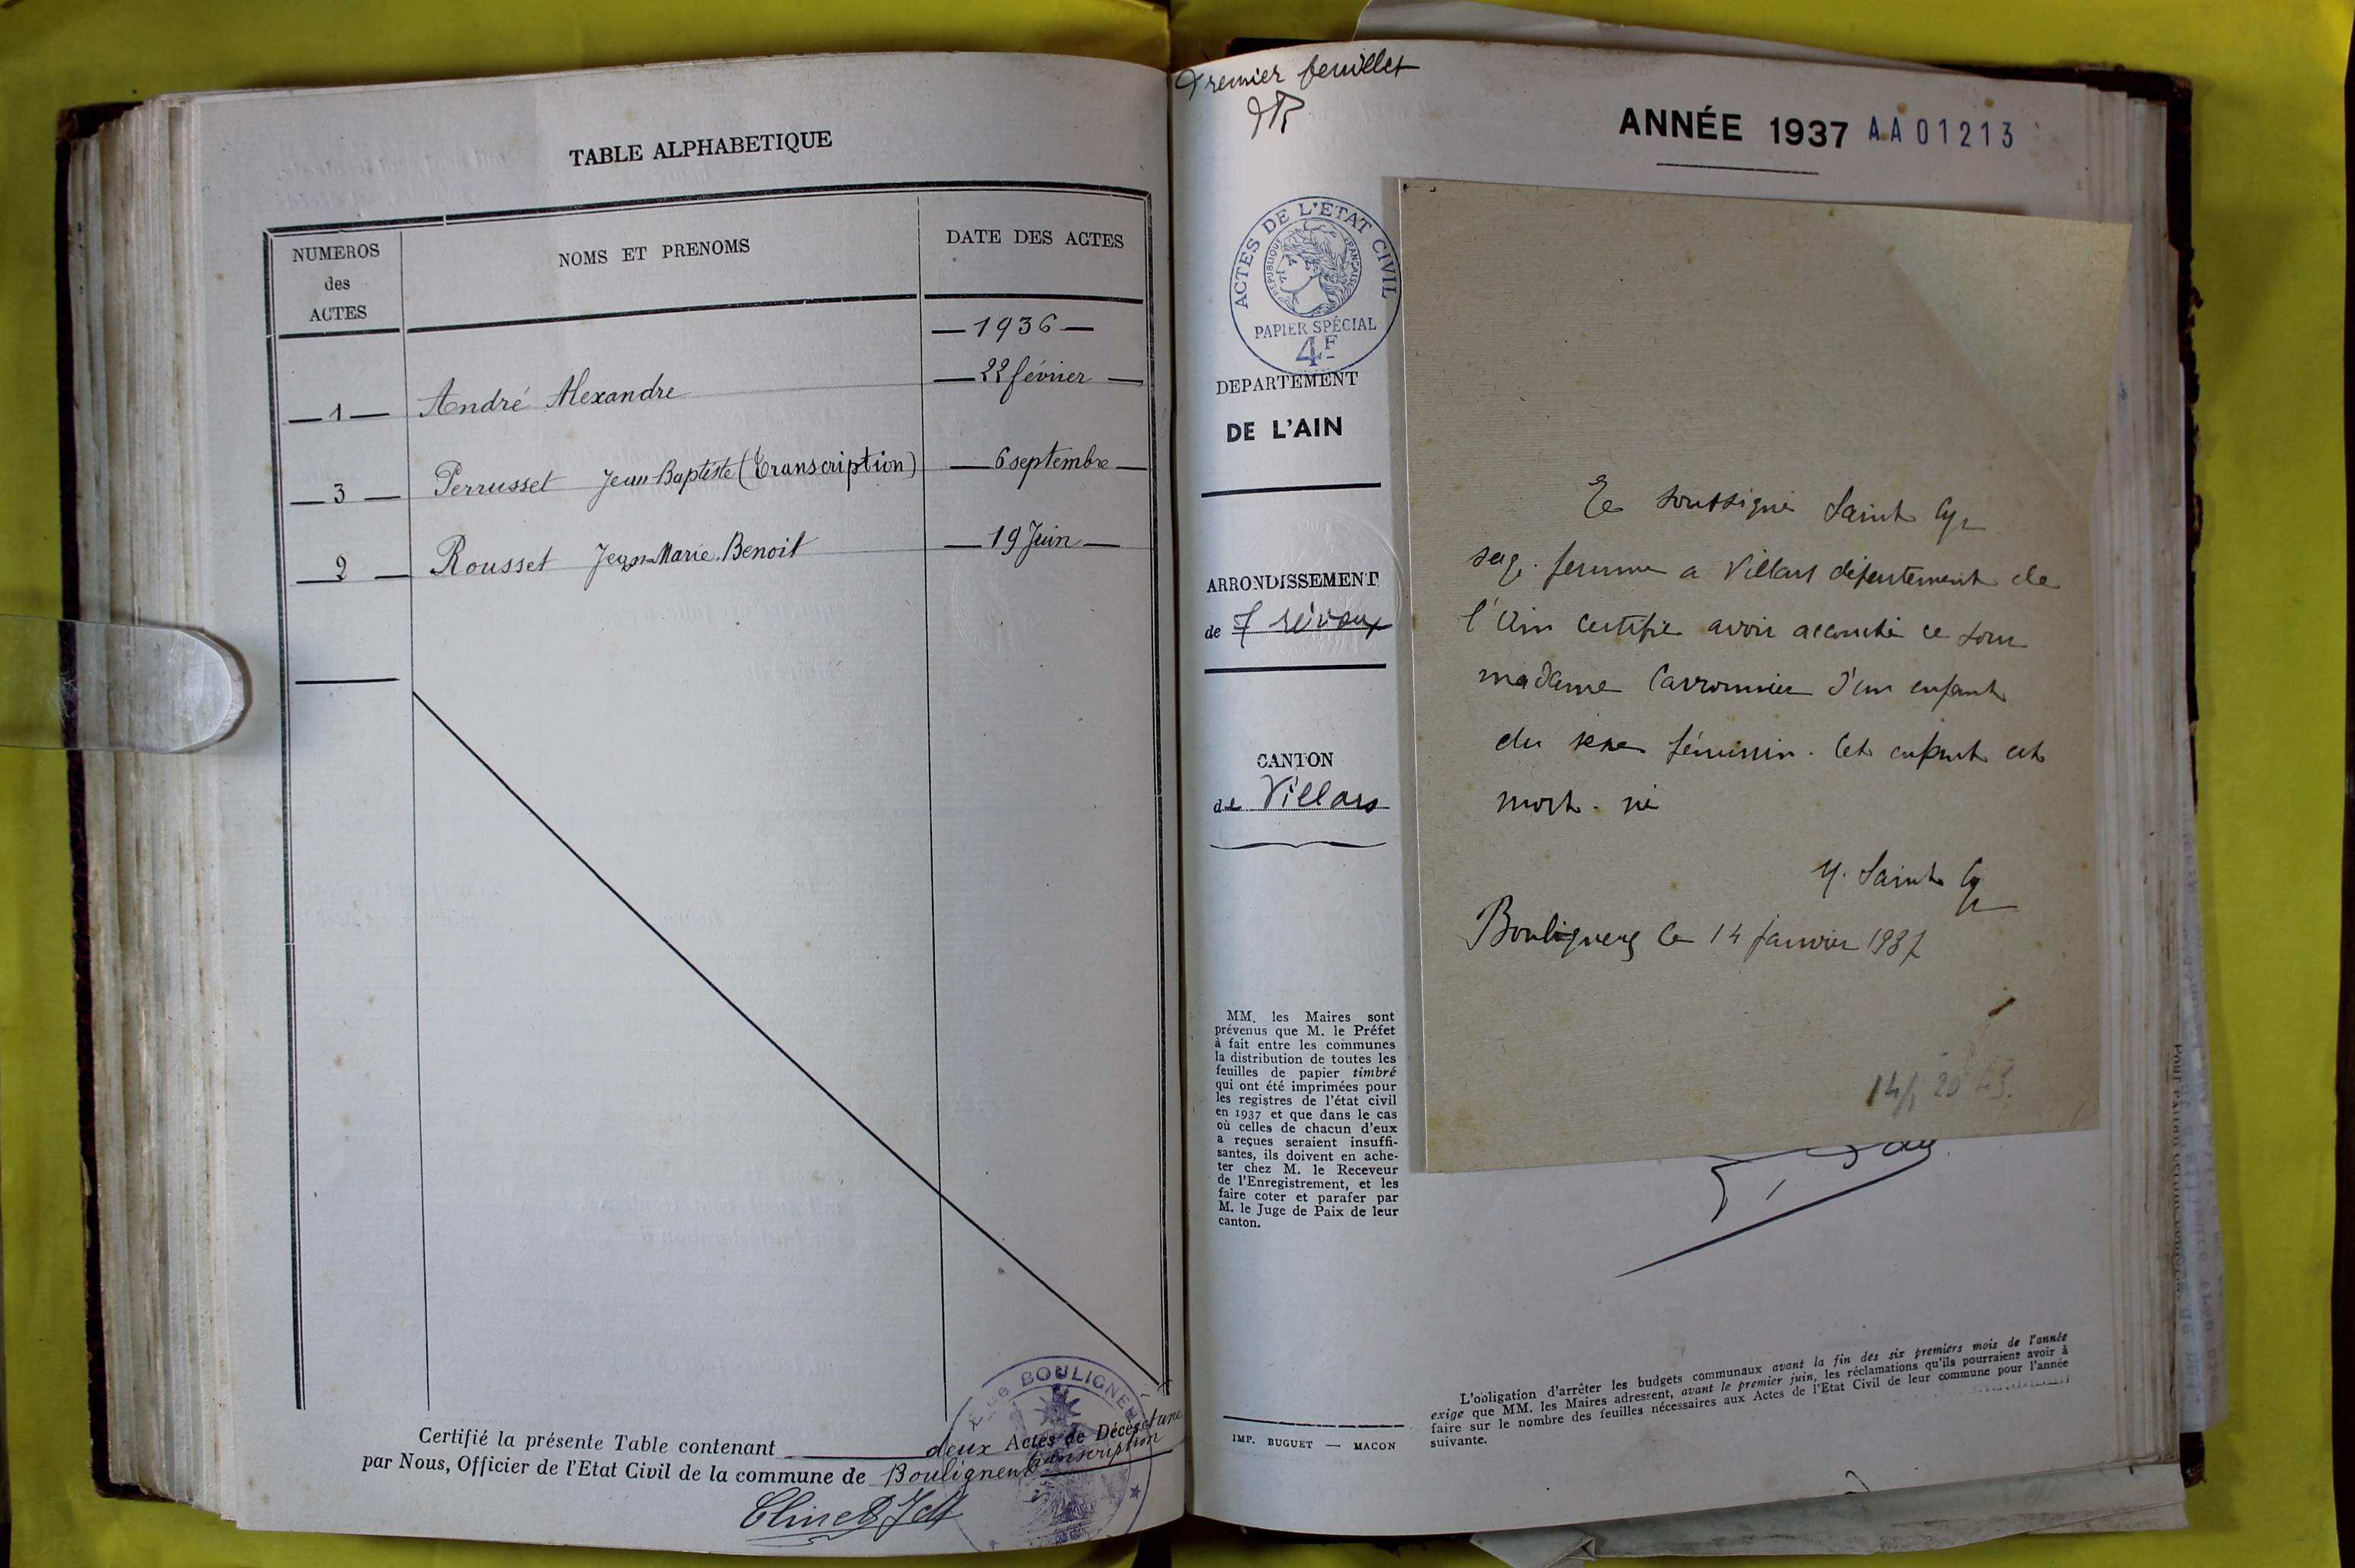 TABLE ALPHABETIQUE
NUMEROS
des
ACTES
NOMS ET PRENOMS
DATE DES ACTES
— 1936 —
— 1 — André Alexandre — 22 février —
— 3 — Perrusset Jean-Baptiste (Transcription) — 6 septembre —
— 2 — Rousset Jean-Marie. Benoit — 19 Juin —
Certifié la présente Table contenant deux Actes de Décès et une
transcription
par Nous, Officier de l'Etat Civil de la commune de Bouligneux
BOULIGNEUX
Premier feuillet
ANNÉE 1937 AA01213
ACTES DE L'ÉTAT CIVIL
REPUBLIQUE FRANÇAISE
PAPIER SPÉCIAL
4F
DEPARTEMENT
DE L'AIN
ARRONDISSEMENT
de Trévoux
CANTON
de Villars
MM. les Maires sont
prévenus que M. le Préfet
à fait entre les communes
la distribution de toutes les
feuilles de papier timbré
qui ont été imprimées pour
les registres de l'état civil
en 1937 et que dans le cas
où celles de chacun d'eux
a reçues seraient insuffi-
santes, ils doivent en ache-
ter chez M. le Receveur
de l'Enregistrement, et les
faire coter et parafer par
M. le Juge de Paix de leur
canton.
IMP. BUGUET — MACON
Je soussigné Saint Cyr
sage-femme a Villars département de
l'Ain certifie avoir accouché ce jour
madame Carronnier d'un enfant
du sexe féminin. Cet enfant est
mort-né
Y. Saint Cyr
Bouligneux le 14 janvier 1937
L'obligation d'arrêter les budgets communaux avant la fin des six premiers mois de l'année
exige que MM. les Maires adressent, avant le premier juin, les réclamations qu'ils pourraient avoir à
faire sur le nombre des feuilles nécessaires aux Actes de l'Etat Civil de leur commune pour l'année
suivante.